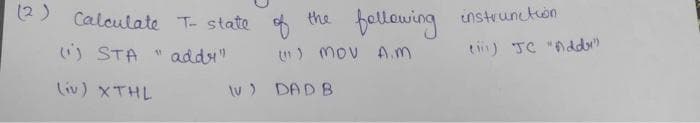 (2) Calculate T- state of the following instrunction
(i) STA "addr" (ii) MOV A.M (iii) JC "Addr"
(iv) XTHL (v) DAD B